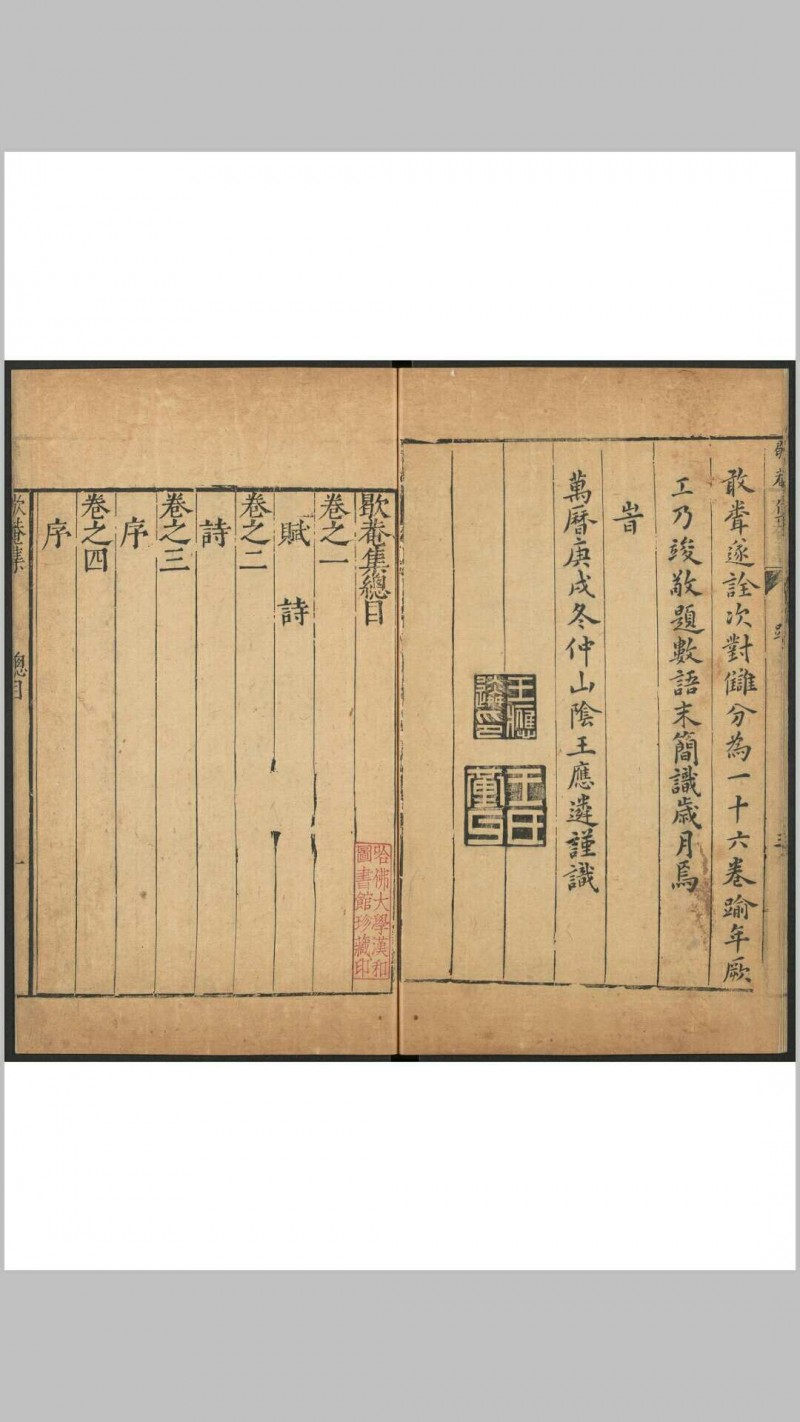 敢聳遂詮次對讎分為一十六卷踰年厥
工乃竣敬題數語末簡識歲月焉
旹
萬曆庚戌冬仲山陰王應遴謹識
王應
遴印
歇菴集總目
卷之一
賦 詩
卷之二
詩
卷之三
序
卷之四
序
歇菴集 總目 一
哈佛大學漢和
圖書館珍藏印